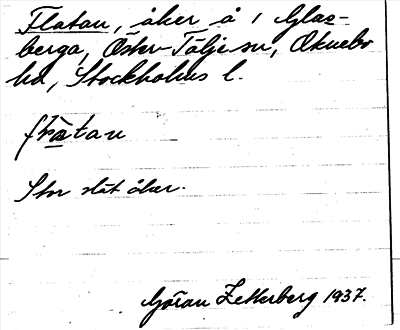 Flatan, åker å 1 Glas-
berga, Öster-Tälje sn, Öknebo
hd, Stockholms l.
flàtan
Stor slät åker.
Göran Zetterberg 1937.